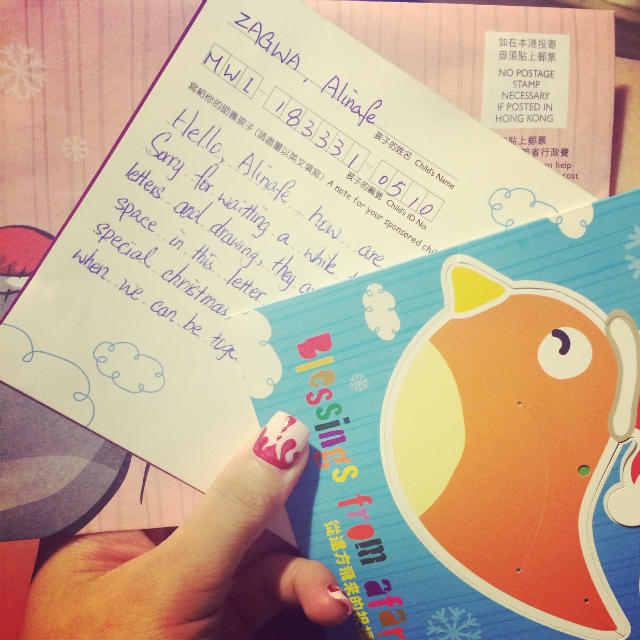 ZAGWA, Alinafe
孩子的姓名 Child's Name
MWI-183331-0510
孩子的編號 Child's ID No.
寫給他的助養孩子(請盡量以英文填寫) A note for your sponsored chi
Hello, Alinafe how are
Sorry for waitting a while
letters and drawing, they
space in this letter
special christmas
when we can be toge
如在本港投寄
毋須貼上郵票
NO POSTAGE
STAMP
NECESSARY
IF POSTED IN
HONG KONG
貼上郵票
省行政費
an help
cost
Blessings from afar
從遠方飛來的祝